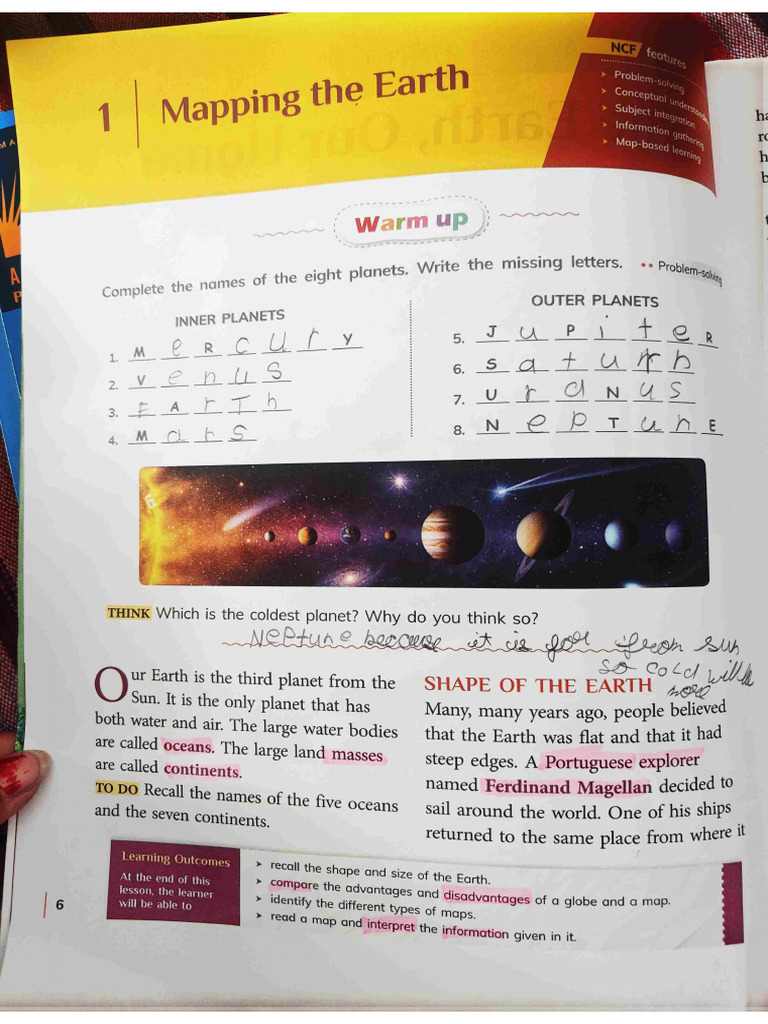 NCF features
➤ Problem-solving
➤ Conceptual
➤ Subject integration
➤ Information gathering
➤ Map-based learning
1 Mapping the Earth
Warm up
Complete the names of the eight planets. Write the missing letters. •• Problem-solving
INNER PLANETS
1. M e R c u r Y
2. V e n u s
3. E A r T h
4. M a r s
OUTER PLANETS
5. J u P i t e R
6. S a t u r n
7. U r a N u s
8. N e p T u n E
THINK Which is the coldest planet? Why do you think so?
Neptune because it is far from sun
so cold will be
more
Our Earth is the third planet from the
Sun. It is the only planet that has
both water and air. The large water bodies
are called oceans. The large land masses
are called continents.
TO DO Recall the names of the five oceans
and the seven continents.
SHAPE OF THE EARTH
Many, many years ago, people believed
that the Earth was flat and that it had
steep edges. A Portuguese explorer
named Ferdinand Magellan decided to
sail around the world. One of his ships
returned to the same place from where it
Learning Outcomes
At the end of this
lesson, the learner
will be able to
➤ recall the shape and size of the Earth.
➤ compare the advantages and disadvantages of a globe and a map.
➤ identify the different types of maps.
➤ read a map and interpret the information given in it.
6